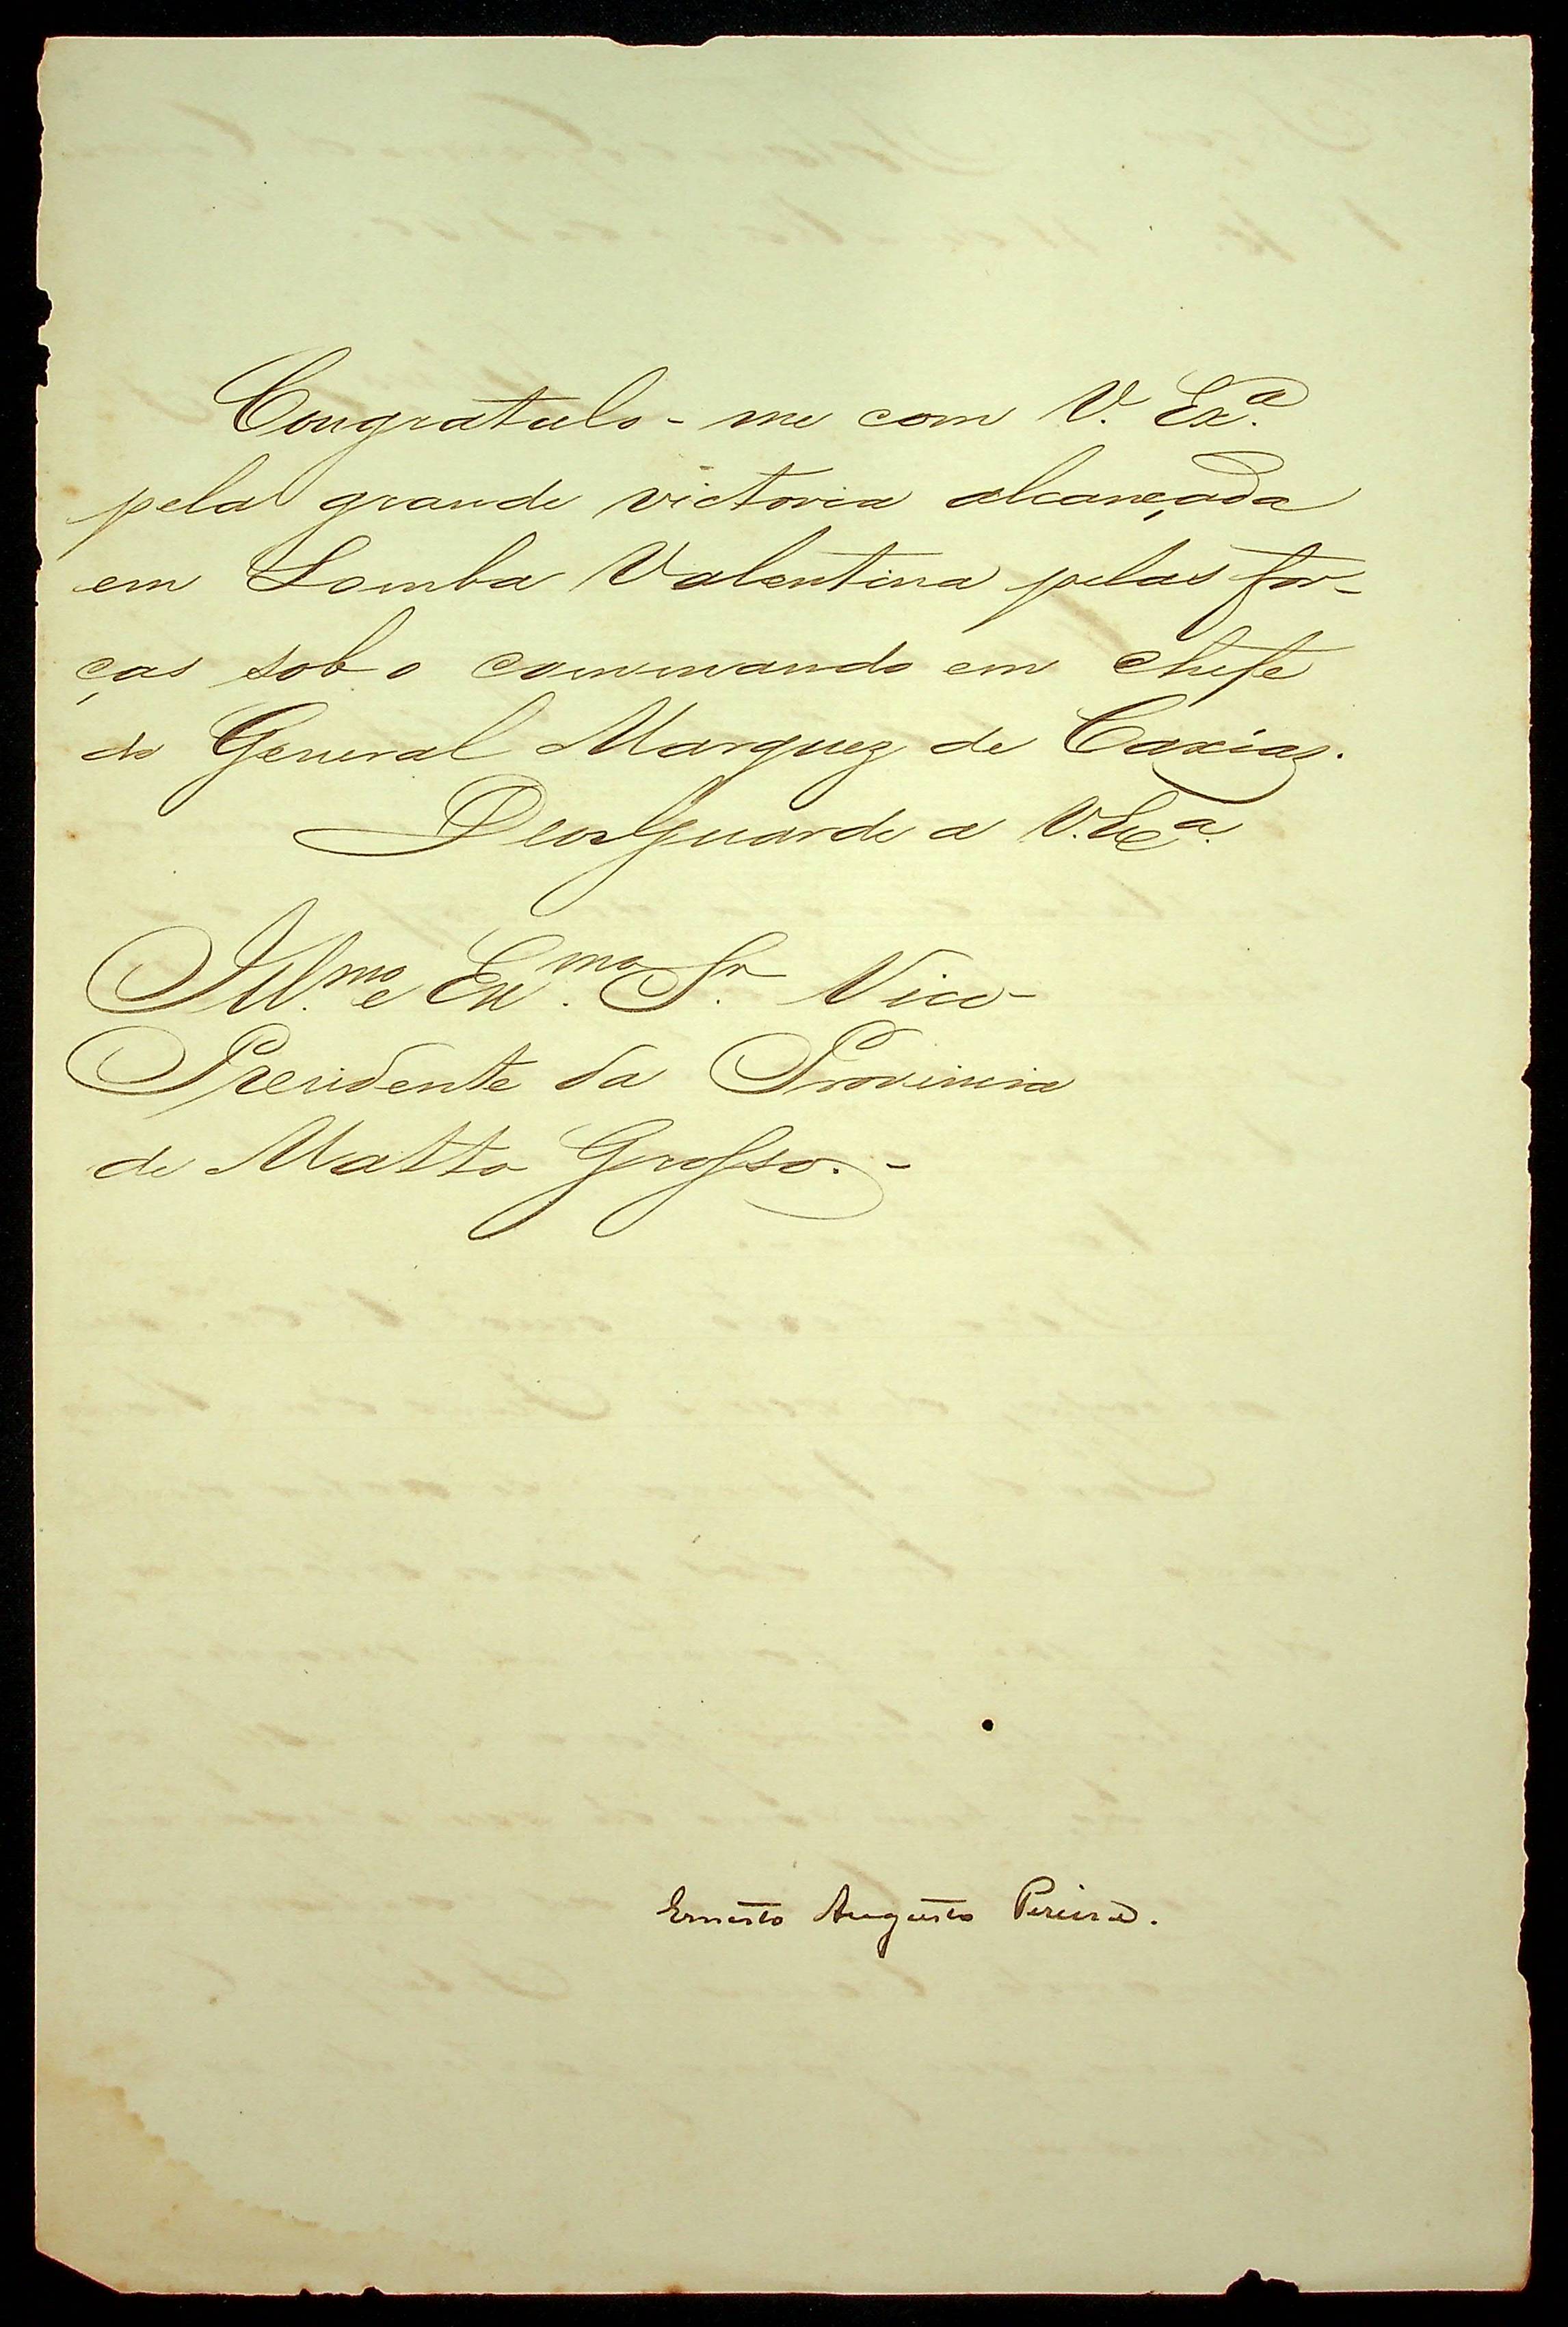 Congratulo-me com V. Exª.
pela grande victoria alcançada
em Lomba Valentina pelas for-
ças sob o commando em chefe
do General Marquez de Caxias.
Deos Guarde a V. Exª.
Illmo. e Exmo. Sr. Vice-
Presidente da Provincia
de Matto Grosso. -
Ernesto Augusto Pereira.